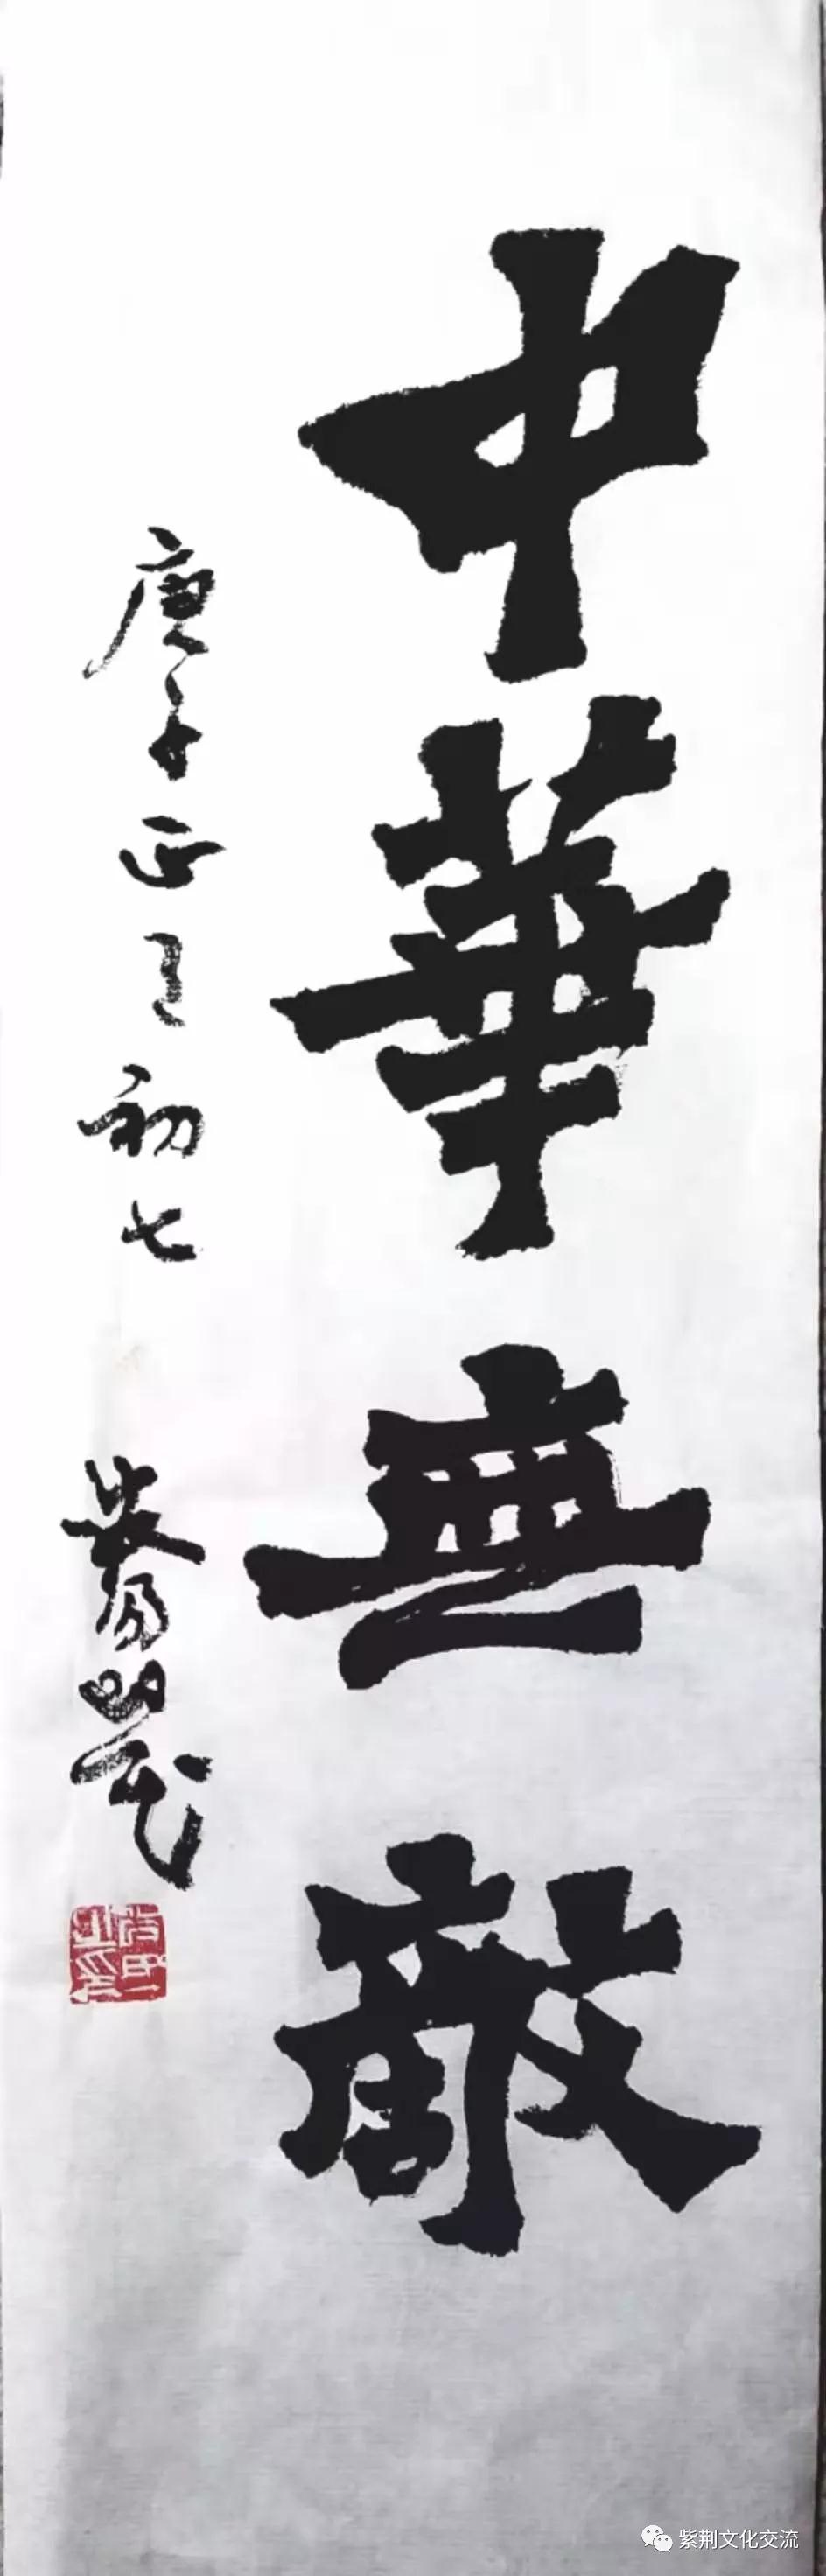 中華無敵
庚子正月初七
紫荆文化交流